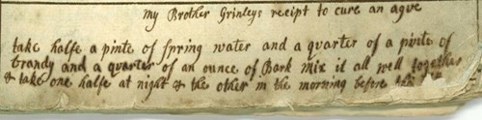 my Brother Grinleys receipt to cure an ague
take halfe a pinte of spring water and a quarter of a pinte of
brandy and a quarter of an ounce of Bark mix it all well together
& take one halfe at night & the other in the morning before